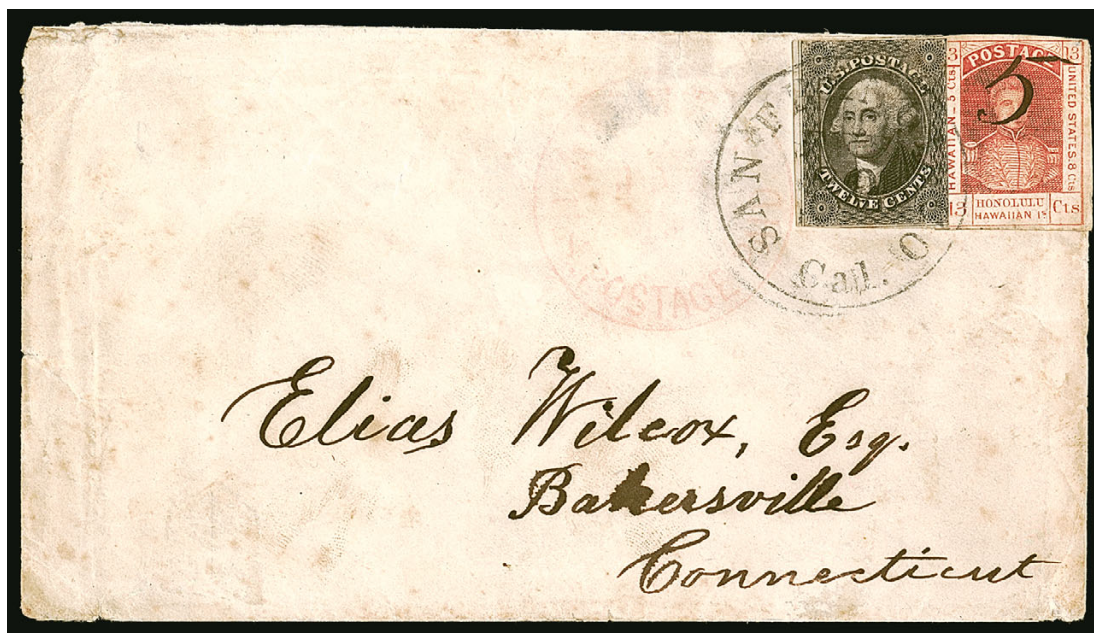 U.S. POSTAGE
TWELVE CENTS
3
13
POSTAGE
5
HAWAIIAN_5 Cts
UNITED STATES.8 Cts
13
HONOLULU
HAWAIIAN Is
Cts
SAN
Cal.
POSTAGE
Elias Wilcox, Esq.
Bakersville
Connecticut